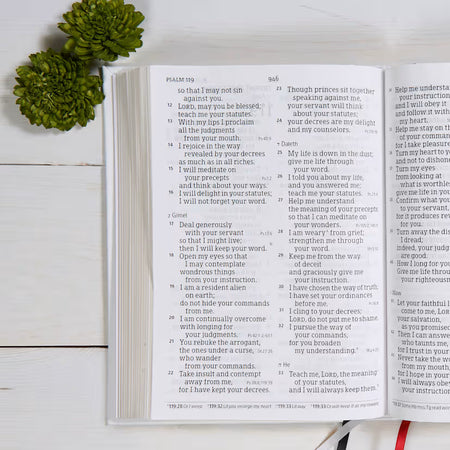 PSALM 119
946
so that I may not sin
against you.
12 LORD, may you be blessed;
teach me your statutes.
13 With my lips I proclaim
all the judgments
from your mouth.
14 I rejoice in the way
revealed by your decrees
as much as in all riches.
15 I will meditate on
your precepts
and think about your ways.
16 I will delight in your statutes;
I will not forget your word.
ג Gimel
17 Deal generously
with your servant
so that I might live;
then I will keep your word.
18 Open my eyes so that
I may contemplate
wondrous things
from your instruction.
19 I am a resident alien
on earth;
do not hide your commands
from me.
20 I am continually overcome
with longing for
your judgments.
21 You rebuke the arrogant,
the ones under a curse,
who wander
from your commands.
22 Take insult and contempt
away from me,
for I have kept your decrees.
23 Though princes sit together
speaking against me,
your servant will think
about your statutes;
24 your decrees are my delight
and my counselors.
ד Daleth
25 My life is down in the dust;
give me life through
your word.
26 I told you about my life,
and you answered me;
teach me your statutes.
27 Help me understand
the meaning of your precepts
so that I can meditate on
your wonders.
28 I am weary from grief;
strengthen me through
your word.
29 Keep me from the way
of deceit
and graciously give me
your instruction.
30 I have chosen the way of truth;
I have set your ordinances
before me.
31 I cling to your decrees;
LORD, do not put me to shame.
32 I pursue the way of
your commands,
for you broaden
my understanding.
ה He
33 Teach me, LORD, the meaning
of your statutes,
and I will always keep them.
Help me understand
your instruction
and I will obey it
and follow it with
my heart.
Help me stay on th
of your command
for I take pleasure
Turn my heart to y
and not to dishone
Turn my eyes
from looking at
what is worthle
give me life in yo
Confirm what you
to your servant,
for it produces rev
for you.
Turn away the dis
I dread;
indeed, your judg
are good.
How I long for you
Give me life throu
your righteousn
Let your faithful l
come to me, LO
your salvation,
as you promised
Then I can answe
who taunts me,
for I trust in your
Never take the wo
from my mouth
for I hope in your
I will always obey
your instruction